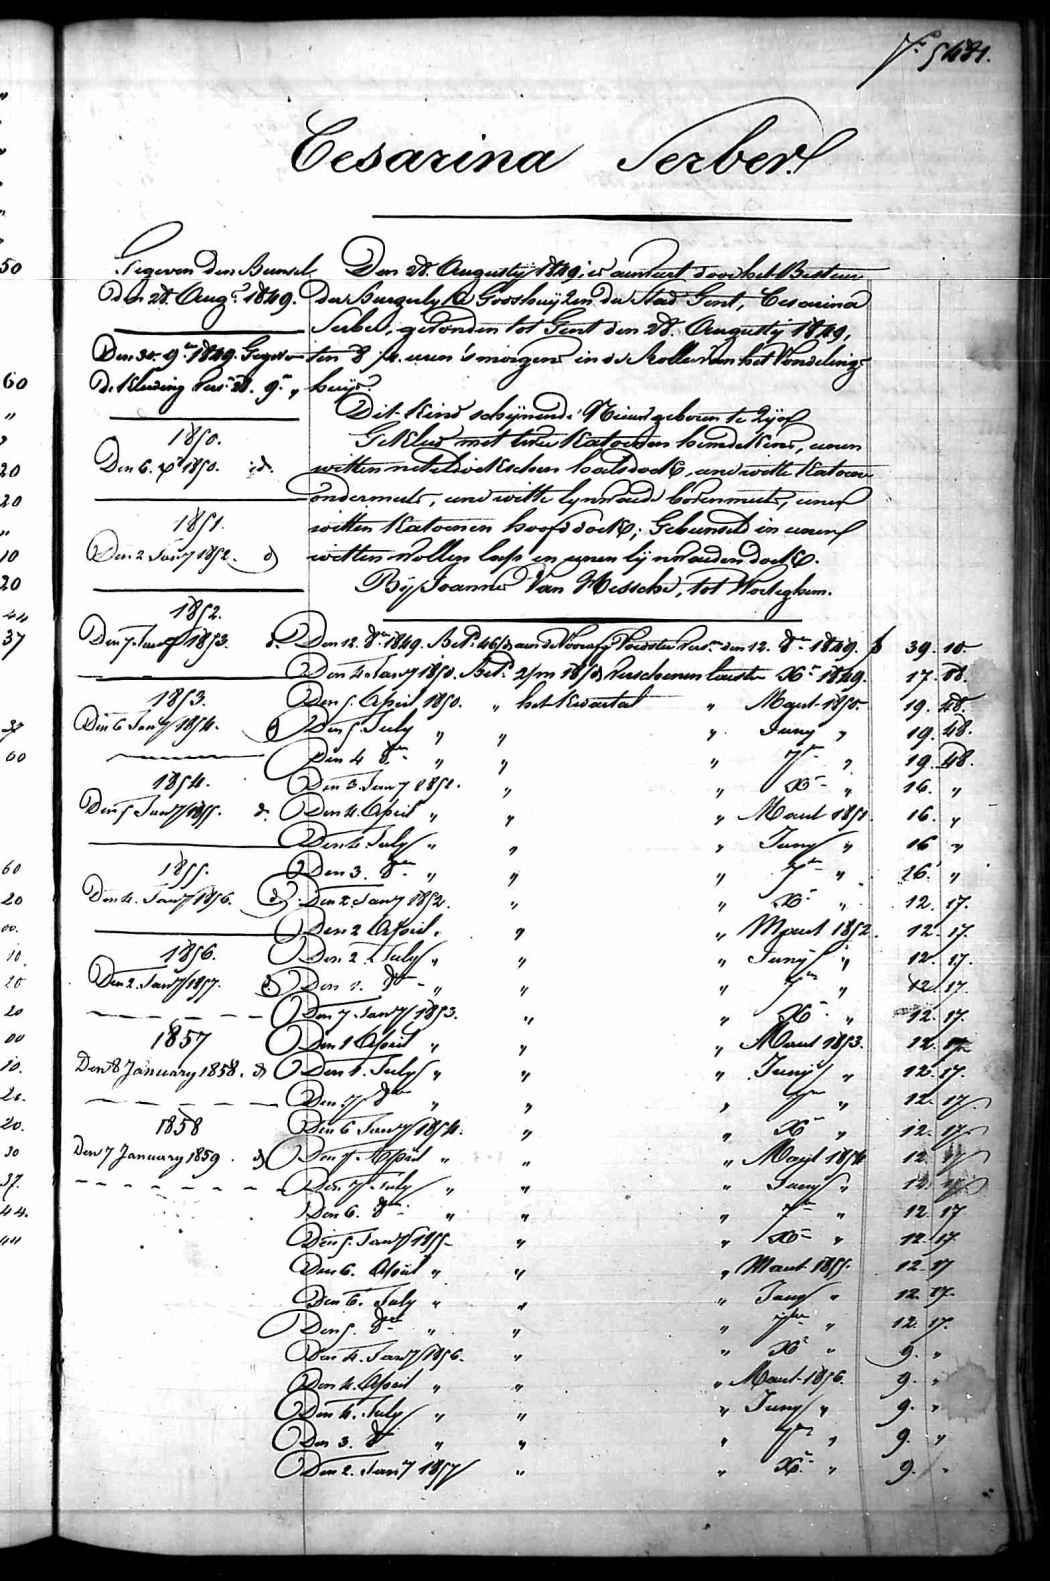 Cesarina Serbel
Gegeven den Bunsel
Den 28. Aug. 1849.
De Kleeding
1850.
Den 6. 1850. id.
1851.
Den 2 Jany 1852. id
1852.
Den 7. Jany 1853. id.
1853.
Den 6 Jany 1854.
1854.
Den 5 Jany 1855. id.
1855.
Den 4. Jany 1856. id
1856.
Den 2. Jany 1857. id
1857
Den 8 January 1858. id
1858
Den 7 January 1859. id
Den 28. Augustij 1849, is aenveert door het Bestuer
der Burgerlyke Godshuyzen der Stad Gent, Cesarina
Serbel, gevonden tot Gent den 28. Augustij 1849,
ten 8 uren 's morgens in de Rolle van het Vondeling-
huys.
Dit Kind schijnende Nieuwgeboren te zijn
Gekleed met twee Katoenen hemdekens, eenen
witten neteldoekschen halsdoek, eene witte Katoene
ondermuts, eene witte lynwaede bovenmuts, eenen
witten Katoenen hoofddoek; Gebunseld in eenen
witten wollen laps en eenen lijnwaeden doek.
Bij Joannes Van Hessche, tot Wortegem.
Den 12. 8er 1849. Bet. aen de Voedster den 12. 8er 1849. f 39. 10
Den 4. Jany 1850. Bet. verschenen laesten Xr 1849. 17. 88.
Den 5. April 1850. " het Kwartael " Maert 1850. 19. 48.
Den 5 July " " " Juny " 19. 48.
Den 4 8er " " " 7er " 19. 48.
Den 3. Jany 1851. " " Xr " 16. "
Den 4. April " " " Maert 1851. 16. "
Den 4. July " " " Juny " 16 "
Den 3. 8er " " " 7er " 16. "
Den 2. Jany 1852. " " Xr " 12. 17.
Den 2 April. " " Maert 1852. 12. 17.
Den 2. July " " " Juny " 12. 17.
Den 1. 8er " " " 7er " 12. 17.
Den 7. Jany 1853. " " Xr " 12. 17.
Den 1 April " " " Maert 1853. 12. 17.
Den 1. July " " " Juny " 12. 17.
Den 8er " " " 7er " 12. 17.
Den 6 Jany 1854. " " Xr " 12. 17.
Den 7. April " " " Maert 1854 12. 17
Den 7. July " " " Juny " 12. 17
Den 6. 8er " " " 7er " 12. 17
Den 5. Jany 1855 " " Xr " 12. 17.
Den 6. April " " " Maert 1855. 12. 17
Den 6. July " " " Juny " 12. 17.
Den 5. 8er " " " 7er " 12. 17.
Den 4. Jany 1856. " " Xr " 9. "
Den 4. April " " " Maert 1856. 9. "
Den 4. July " " " Juny " 9. "
Den 3. 8er " " " 7er " 9. "
Den 2. Jany 1857 " " Xr " 9. "